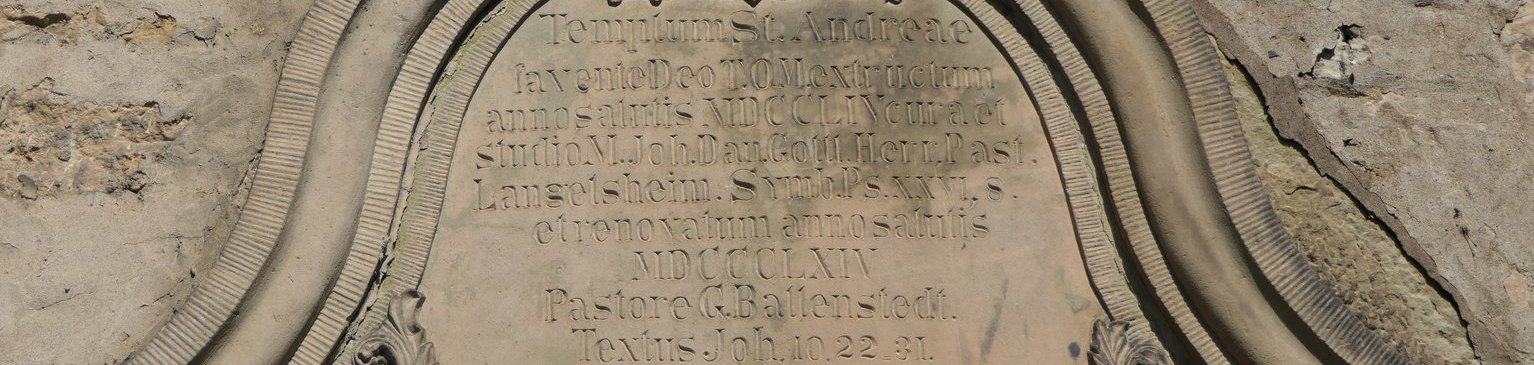 Templum St. Andreae
favente Deo T.O.M extructum
anno salutis MDCCLIV cura et
studio M. Joh. Dan. Gottl. Herr, Past.
Langelsheim. Symb. Ps. XXVI, 8.
et renovatum anno salutis
MDCCCLXIV
Pastore G. Battenstedt.
Textus Joh. 10. 22-31.